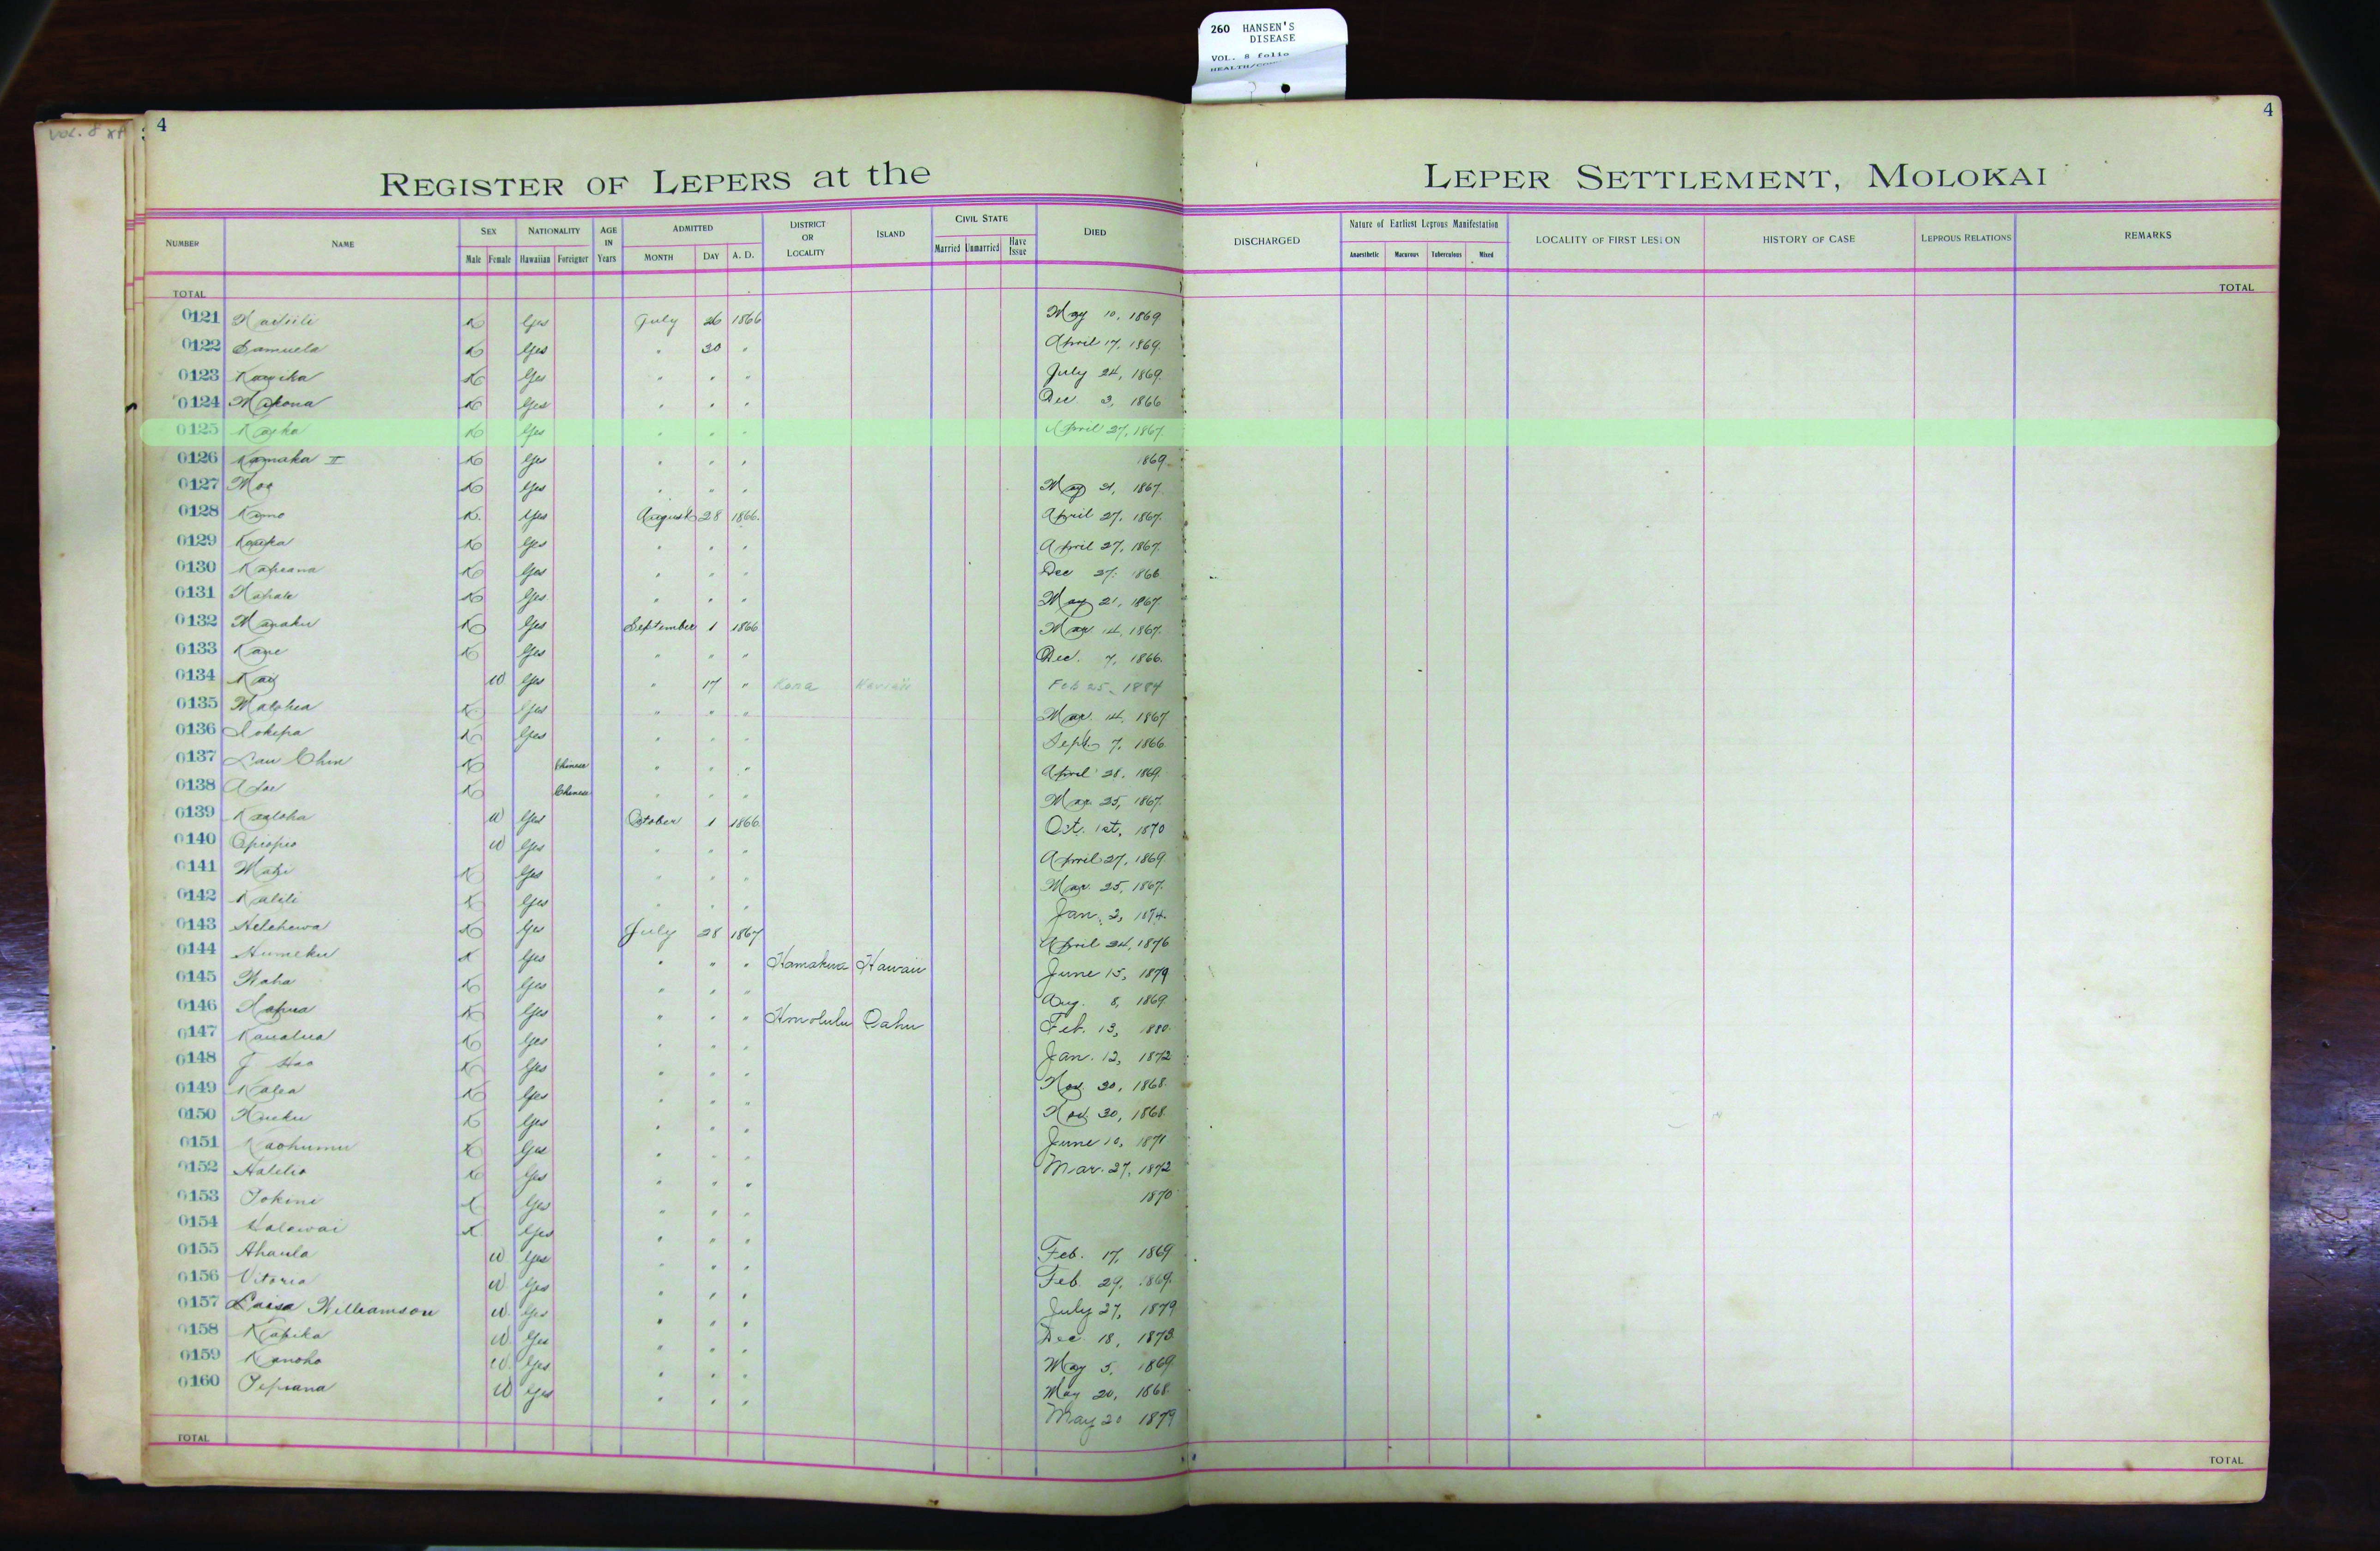 260 HANSEN'S
DISEASE
VOL. 8 folio
VOL. 8
4
4
REGISTER OF LEPERS at the LEPER SETTLEMENT, MOLOKAI
NUMBER NAME SEX Male Female NATIONALITY Hawaiian Foreigner AGE IN Years ADMITTED MONTH DAY A. D. DISTRICT OR LOCALITY ISLAND CIVIL STATE Married Unmarried Have Issue DIED DISCHARGED Nature of Earliest Leprous Manifestation Anaesthetic Macurous Tuberculous Mixed LOCALITY OF FIRST LESION HISTORY OF CASE LEPROUS RELATIONS REMARKS
TOTAL TOTAL
0121 K Yes July 26 1866 May 10, 1869
0122 Samuela K Yes " 30 " April 17, 1869.
0123 K Yes " " " July 24, 1869.
0124 Makona K Yes " " " Dec 3, 1866
0125 K Yes " " " April 27, 1867.
0126 Kamaka II K Yes " " " 1869
0127 Moa K Yes " " " May 21, 1867.
0128 Kamo K. Yes August 28 1866. April 27, 1867.
0129 K Yes " " " April 27, 1867.
0130 Kapeana K Yes " " " Dec 27, 1866
0131 K Yes " " " May 21, 1867.
0132 K Yes September 1 1866 Mar 14, 1867.
0133 K Yes " " " Dec. 7, 1866.
0134 W. Yes " 17 " Kona Hawaii Feb 25, 1884
0135 K Yes " " " Mar. 14, 1867
0136 Iokepa K Yes " " " Sept. 7, 1866
0137 Lau Chin K Chinese " " " April 28, 1869.
0138 K Chinese " " " Mar. 25, 1867.
0139 Kealoha W Yes October 1 1866. Oct. 1st, 1870
0140 Opiopio W Yes " " " April 27, 1869.
0141 K Yes " " " Mar. 25, 1867.
0142 K Yes " " " Jan. 3, 1874.
0143 Helehewa K Yes July 28 1867 April 24, 1876
0144 Humeku K Yes " " " Hamakua Hawaii June 15, 1879
0145 K Yes " " " Aug. 8, 1869.
0146 K Yes " " " Honolulu Oahu Feb. 13, 1880.
0147 Kaualua K Yes " " " Jan. 12, 1872
0148 J Hao K Yes " " " Nov. 30, 1868.
0149 Kalea K Yes " " " Nov. 30, 1868.
0150 K Yes " " " June 10, 1871
0151 Kaohumu K Yes " " " Mar. 27, 1872
0152 Halelio K Yes " " " 1870
0153 K Yes " " "
0154 K Yes " " " Feb. 17, 1869
0155 Ahaula W Yes " " " Feb. 29, 1869.
0156 Vitoria W Yes " " " July 27, 1879
0157 Luisa Williamson W Yes " " " Dec 18, 1873.
0158 Kapika W Yes " " " May 5, 1869
0159 Kanoho W. Yes " " " May 20, 1868.
0160 W Yes " " " May 20 1879
TOTAL TOTAL